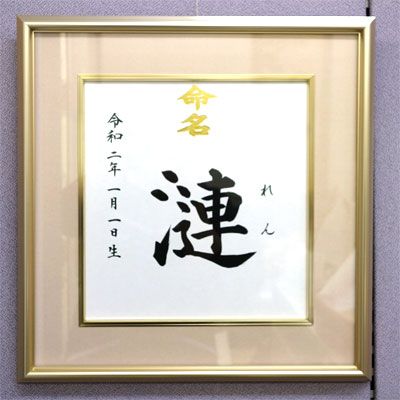 命名
れん
漣
令和二年一月一日生